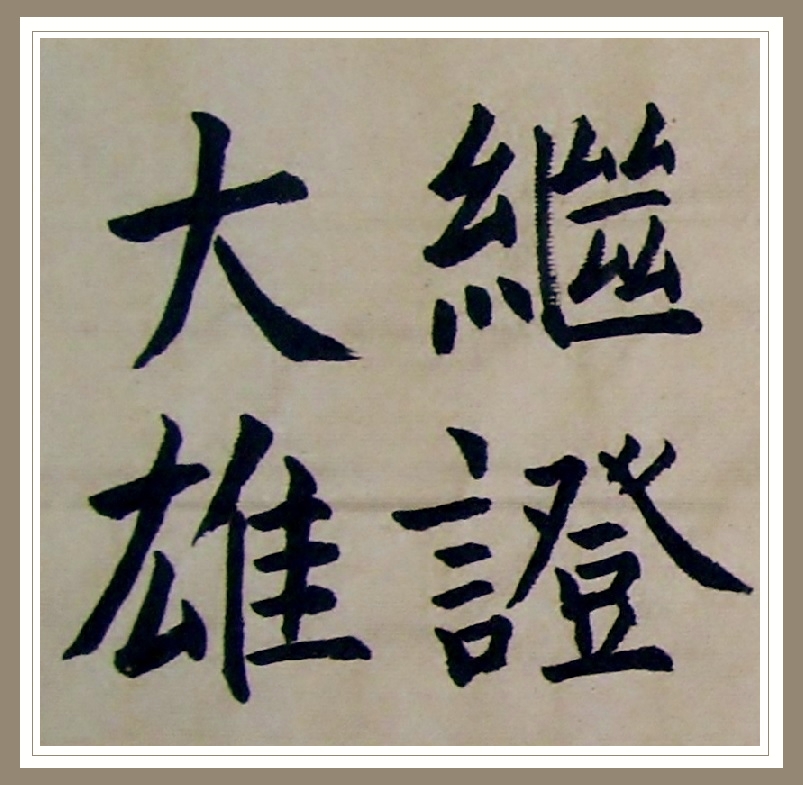 繼證
大雄